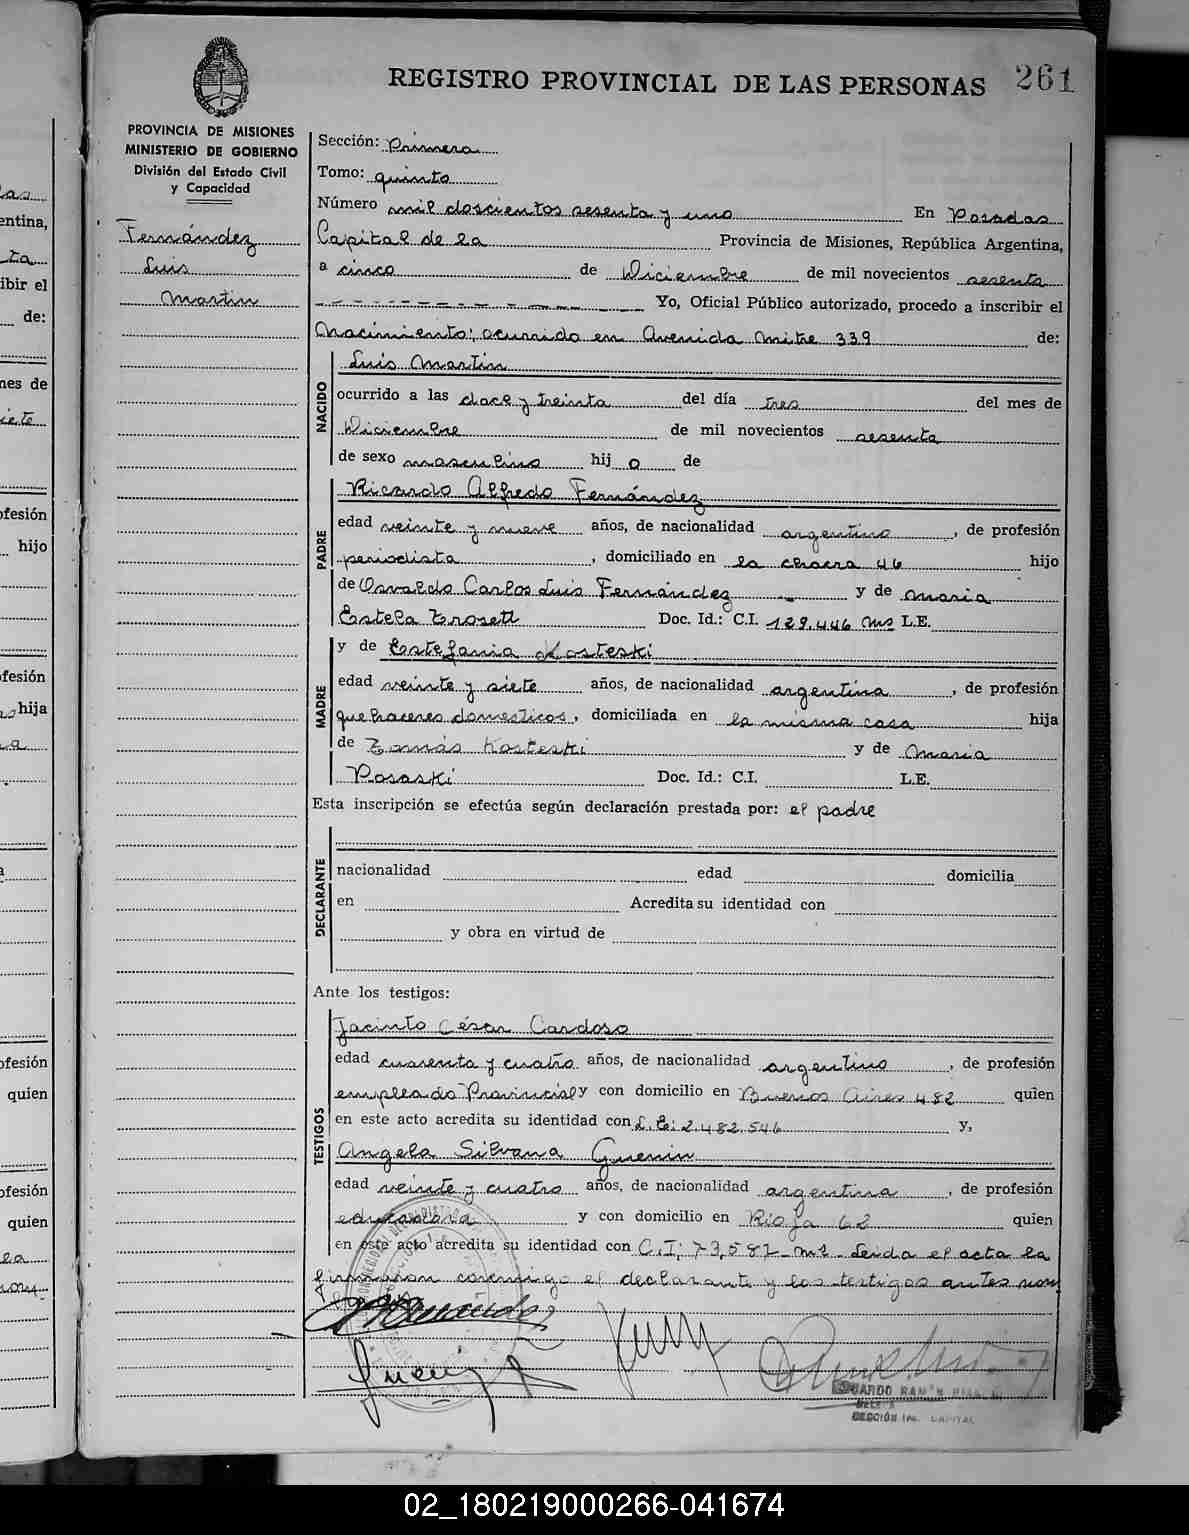 REGISTRO PROVINCIAL DE LAS PERSONAS 261
PROVINCIA DE MISIONES
MINISTERIO DE GOBIERNO
División del Estado Civil
y Capacidad
Fernández
Luis
Martin
Sección: Primera
Tomo: quinto
Número mil doscientos sesenta y uno En Posadas
Capital de la Provincia de Misiones, República Argentina,
a cinco de Diciembre de mil novecientos sesenta
Yo, Oficial Público autorizado, procedo a inscribir el
Nacimiento: ocurrido en Avenida Mitre 339 de:
NACIDO
Luis Martin
ocurrido a las doce y treinta del día tres del mes de
Diciembre de mil novecientos sesenta
de sexo masculino hijo de
PADRE
Ricardo Alfredo Fernández
edad veinte y nueve años, de nacionalidad argentino, de profesión
periodista, domiciliado en la chacra 46 hijo
de Osvaldo Carlos Luis Fernández y de Maria
Estela Doc. Id.: C.I. 129.446 Ms L.E.
MADRE
y de Estefania Kosteski
edad veinte y siete años, de nacionalidad argentina, de profesión
quehaceres domesticos, domiciliada en la misma casa hija
de Tomás Kosteski y de Maria
Posaski Doc. Id.: C.I. L.E.
Esta inscripción se efectúa según declaración prestada por: el padre
DECLARANTE
nacionalidad edad domicilia
en Acredita su identidad con
y obra en virtud de
Ante los testigos:
TESTIGOS
Jacinto César Cardoso
edad cuarenta y cuatro años, de nacionalidad argentino, de profesión
empleado Provincial y con domicilio en Buenos Aires 482 quien
en este acto acredita su identidad con L.E: 2.482.546 y,
Angela Silvana Guenin
edad veinte y cuatro años, de nacionalidad argentina, de profesión
educadora y con domicilio en Rioja 62 quien
en este acto acredita su identidad con C.I: 73.581 Ms. Leida el acta la
firmaron conmigo el declarante y los testigos antes nom
Fernandez
Guenin
SECCIÓN 1ra. CAPITAL
02_180219000266-041674